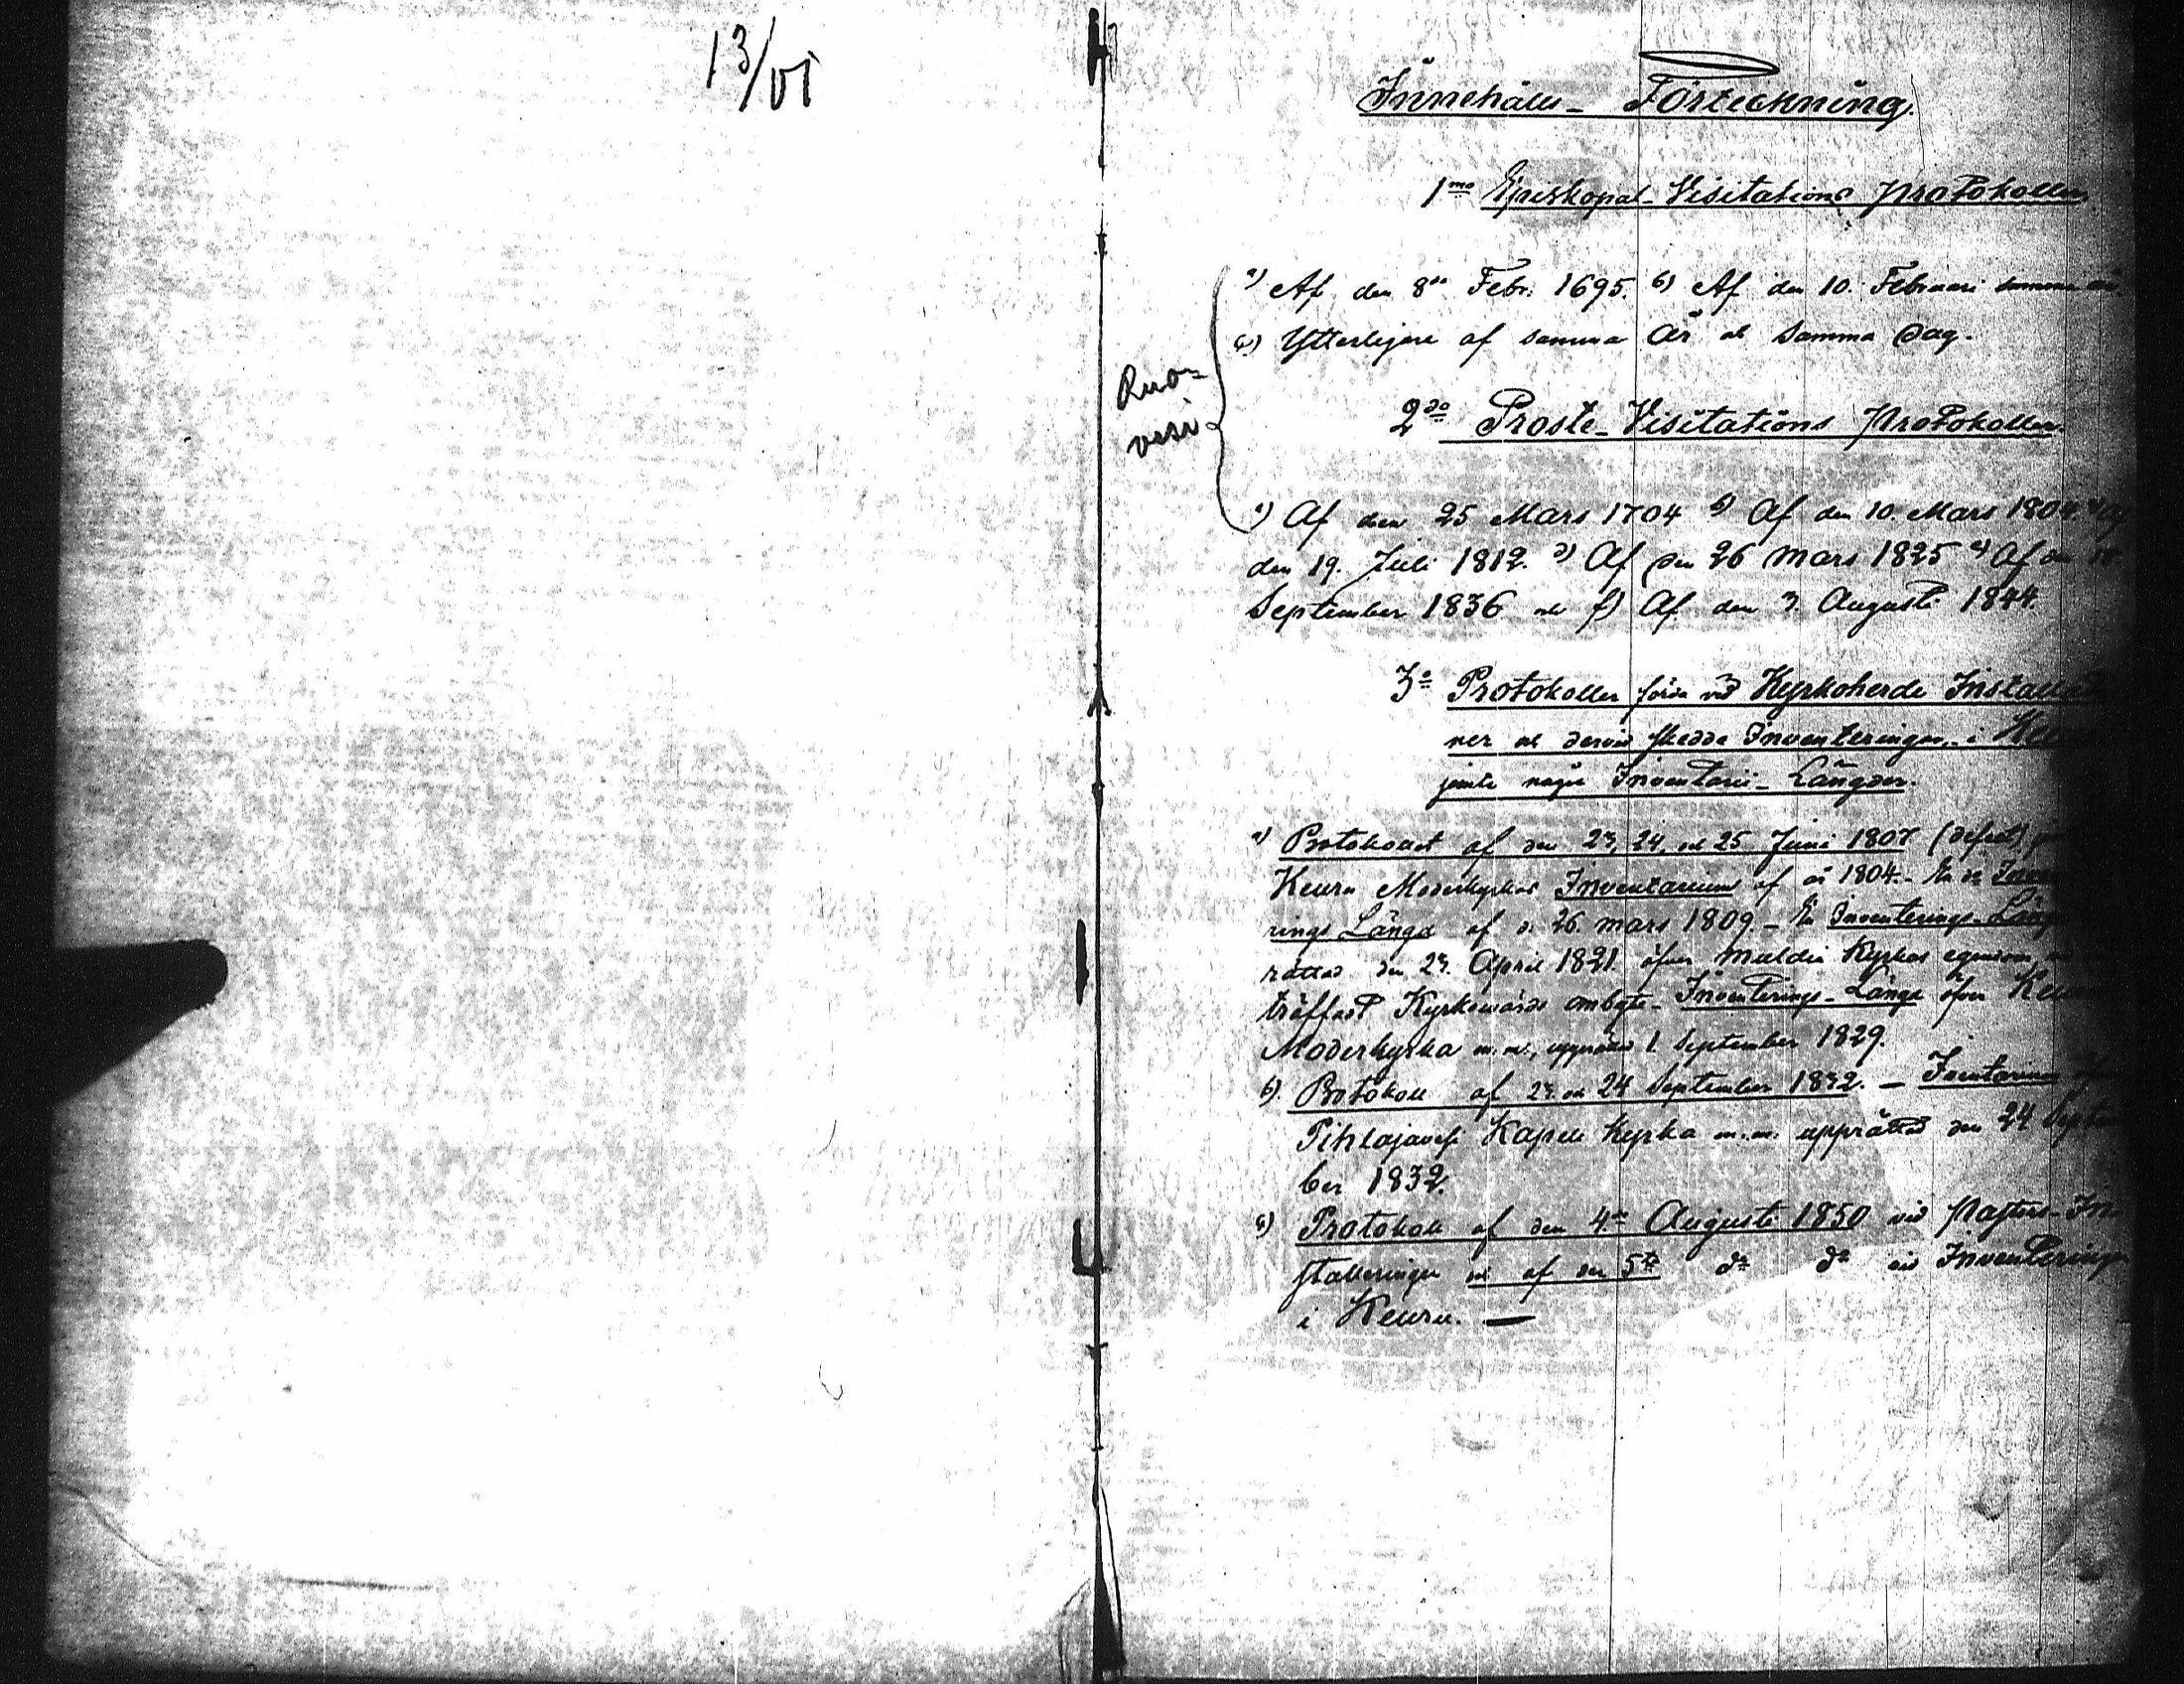 13/VI
Innehålls- Förteckning.
1mo Episkopal-Visitations Protokoller
a) Af den 8de Febr. 1695. b) Af den 10. Februari samma år.
c) Ytterligare af samma år och samma dag.
Ruo-
vesi
2do Proste-Visitations Protokoller.
a) Af den 25 Mars 1704 b) Af den 10. Mars 1804. c) Af
den 19. Juli 1812. d) Af den 26 Mars 1825 e) Af den 18
September 1836 och f) Af den 3. Augusti 1844.
3o Protokoller förda vid Kyrkoherde Installatio
ner och dervid skedda Inventeringar i Keuru
jemte några Inventarii-Längder.
a) Protokollet af den 23, 24, och 25 Juni 1807 (defect)
Keuru Moderkyrkas Inventarium af år 1804.- En
rings Längd af d. 26. mars 1809. - En Inventerings-Längd
rättad den 23. April 1821. öfver Multia Kyrkas egendom
träffadt Kyrkovärds ombyte- Inventerings-Längd öfver Keuru
Moderkyrka m.m., upprättad 1. September 1829.
b). Protokoll af 23. och 24 September 1832. - Inventarium
Pihlajavesi Kapell Kyrka m.m. upprättad den 24 Septem
ber 1832.
c) Protokoll af den 4de Augusti 1850 vid Pastors-In-
stalleringen och af den 5te do do vid Inventeringen
i Keuru. —